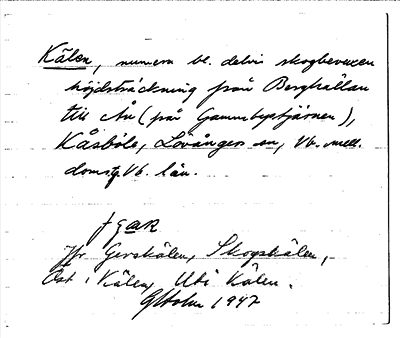 Kälen, numera bl. delvis skogbevuxen
höjdsträckning från Berghällan
till Ån (på Gammbyatjärnen),
Kåsböle, Lövångers sn, Vb. mell.
doms. Vb. län.
Jfr Gerskälen, Skogskälen,
Öst i Kälen, Uti Kälen.
GHolm 1947